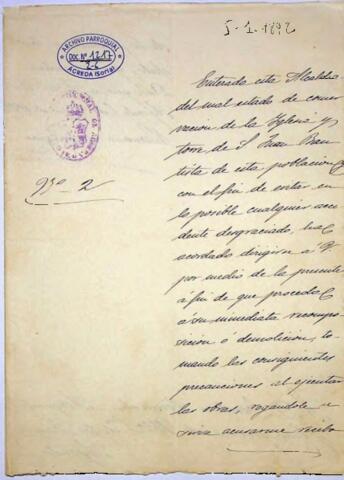 5-1-1892
ARCHIVO PARROQUIAL
DOC. Nº 1217
2-2
AGREDA (Soria)
Nº 2
Enterado esta Alcaldia
del mal estado de conser
vacion de la Yglesia y
torre de S. Juan Bau
tista de esta poblacion, y
con el fin de evitar en
lo posible cualquier acci
dente desgraciado, ha
acordado dirigirse a V.
por medio de la presente
á fin de que proceda
á su inmediata recompo
sición ó demolicion, to
mando las consiguientes
precauciones al ejecutar
las obras, rogandole se
sirva acusarme recibo